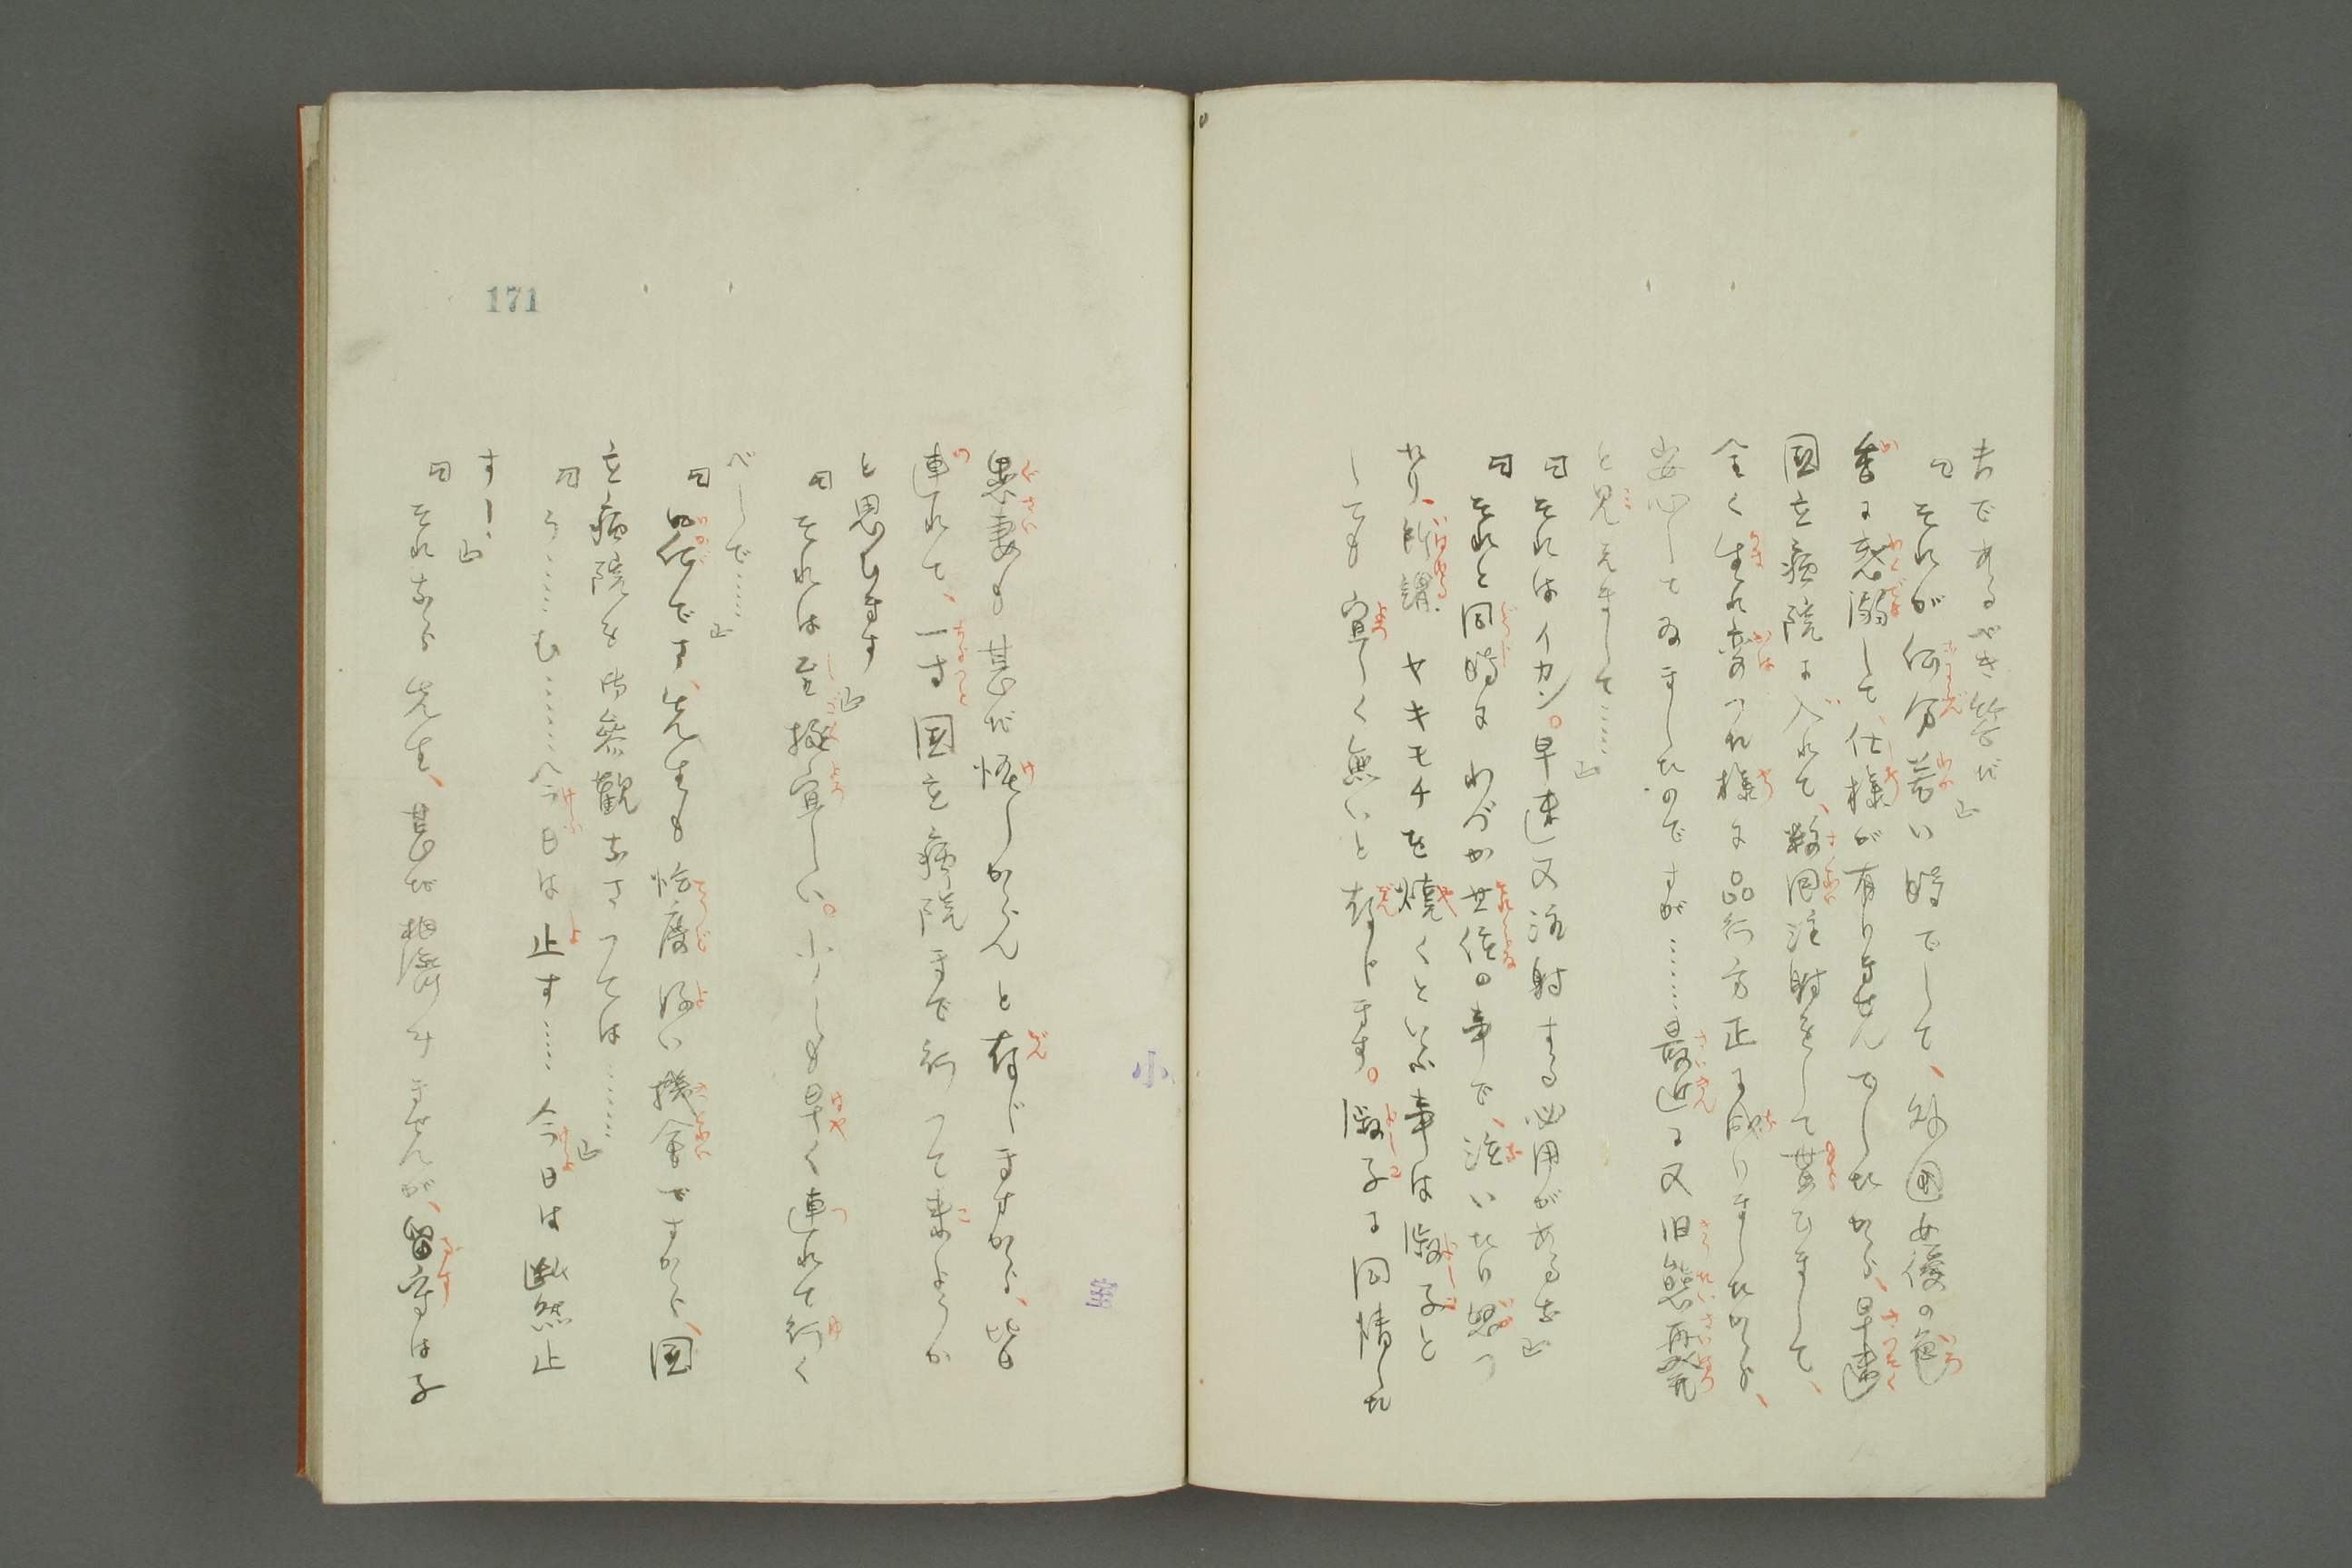 者であるべき筈だ」
「それが何分若い時でして、外国女優の色
香に惑溺して、仕様が有りませんでしたから、早速
国立病院に入れて、数回注射をして貰ひまして、
全く生れ変つた様に品行方正に成りましたから、
安心してゐましたのですが………最近に又旧態再発
と見えまして……」
「それはイカン。早速又注射する必用がある哉」
「それと同時にわづか 事で、泣いたり怒つ
たり、所謂ヤキモチを焼くといふ事は淑子と
しても宜しく無いと存じます。淑子に同情した
愚妻も甚だ怪しからんと存じますから、皆
連れて、一寸国立病院まで行つて来ようか
と思ひます」
「それは至極宜しい。小しも早く連れて行く
べしで……」
「如何です、先生も恰度好い機会ですから、国
立病院を御参観なすつては……」
「う……む……今日は止す……今日は断然止
すー」
「それなら先生、甚だ相済みませんが、留守は子
171
小